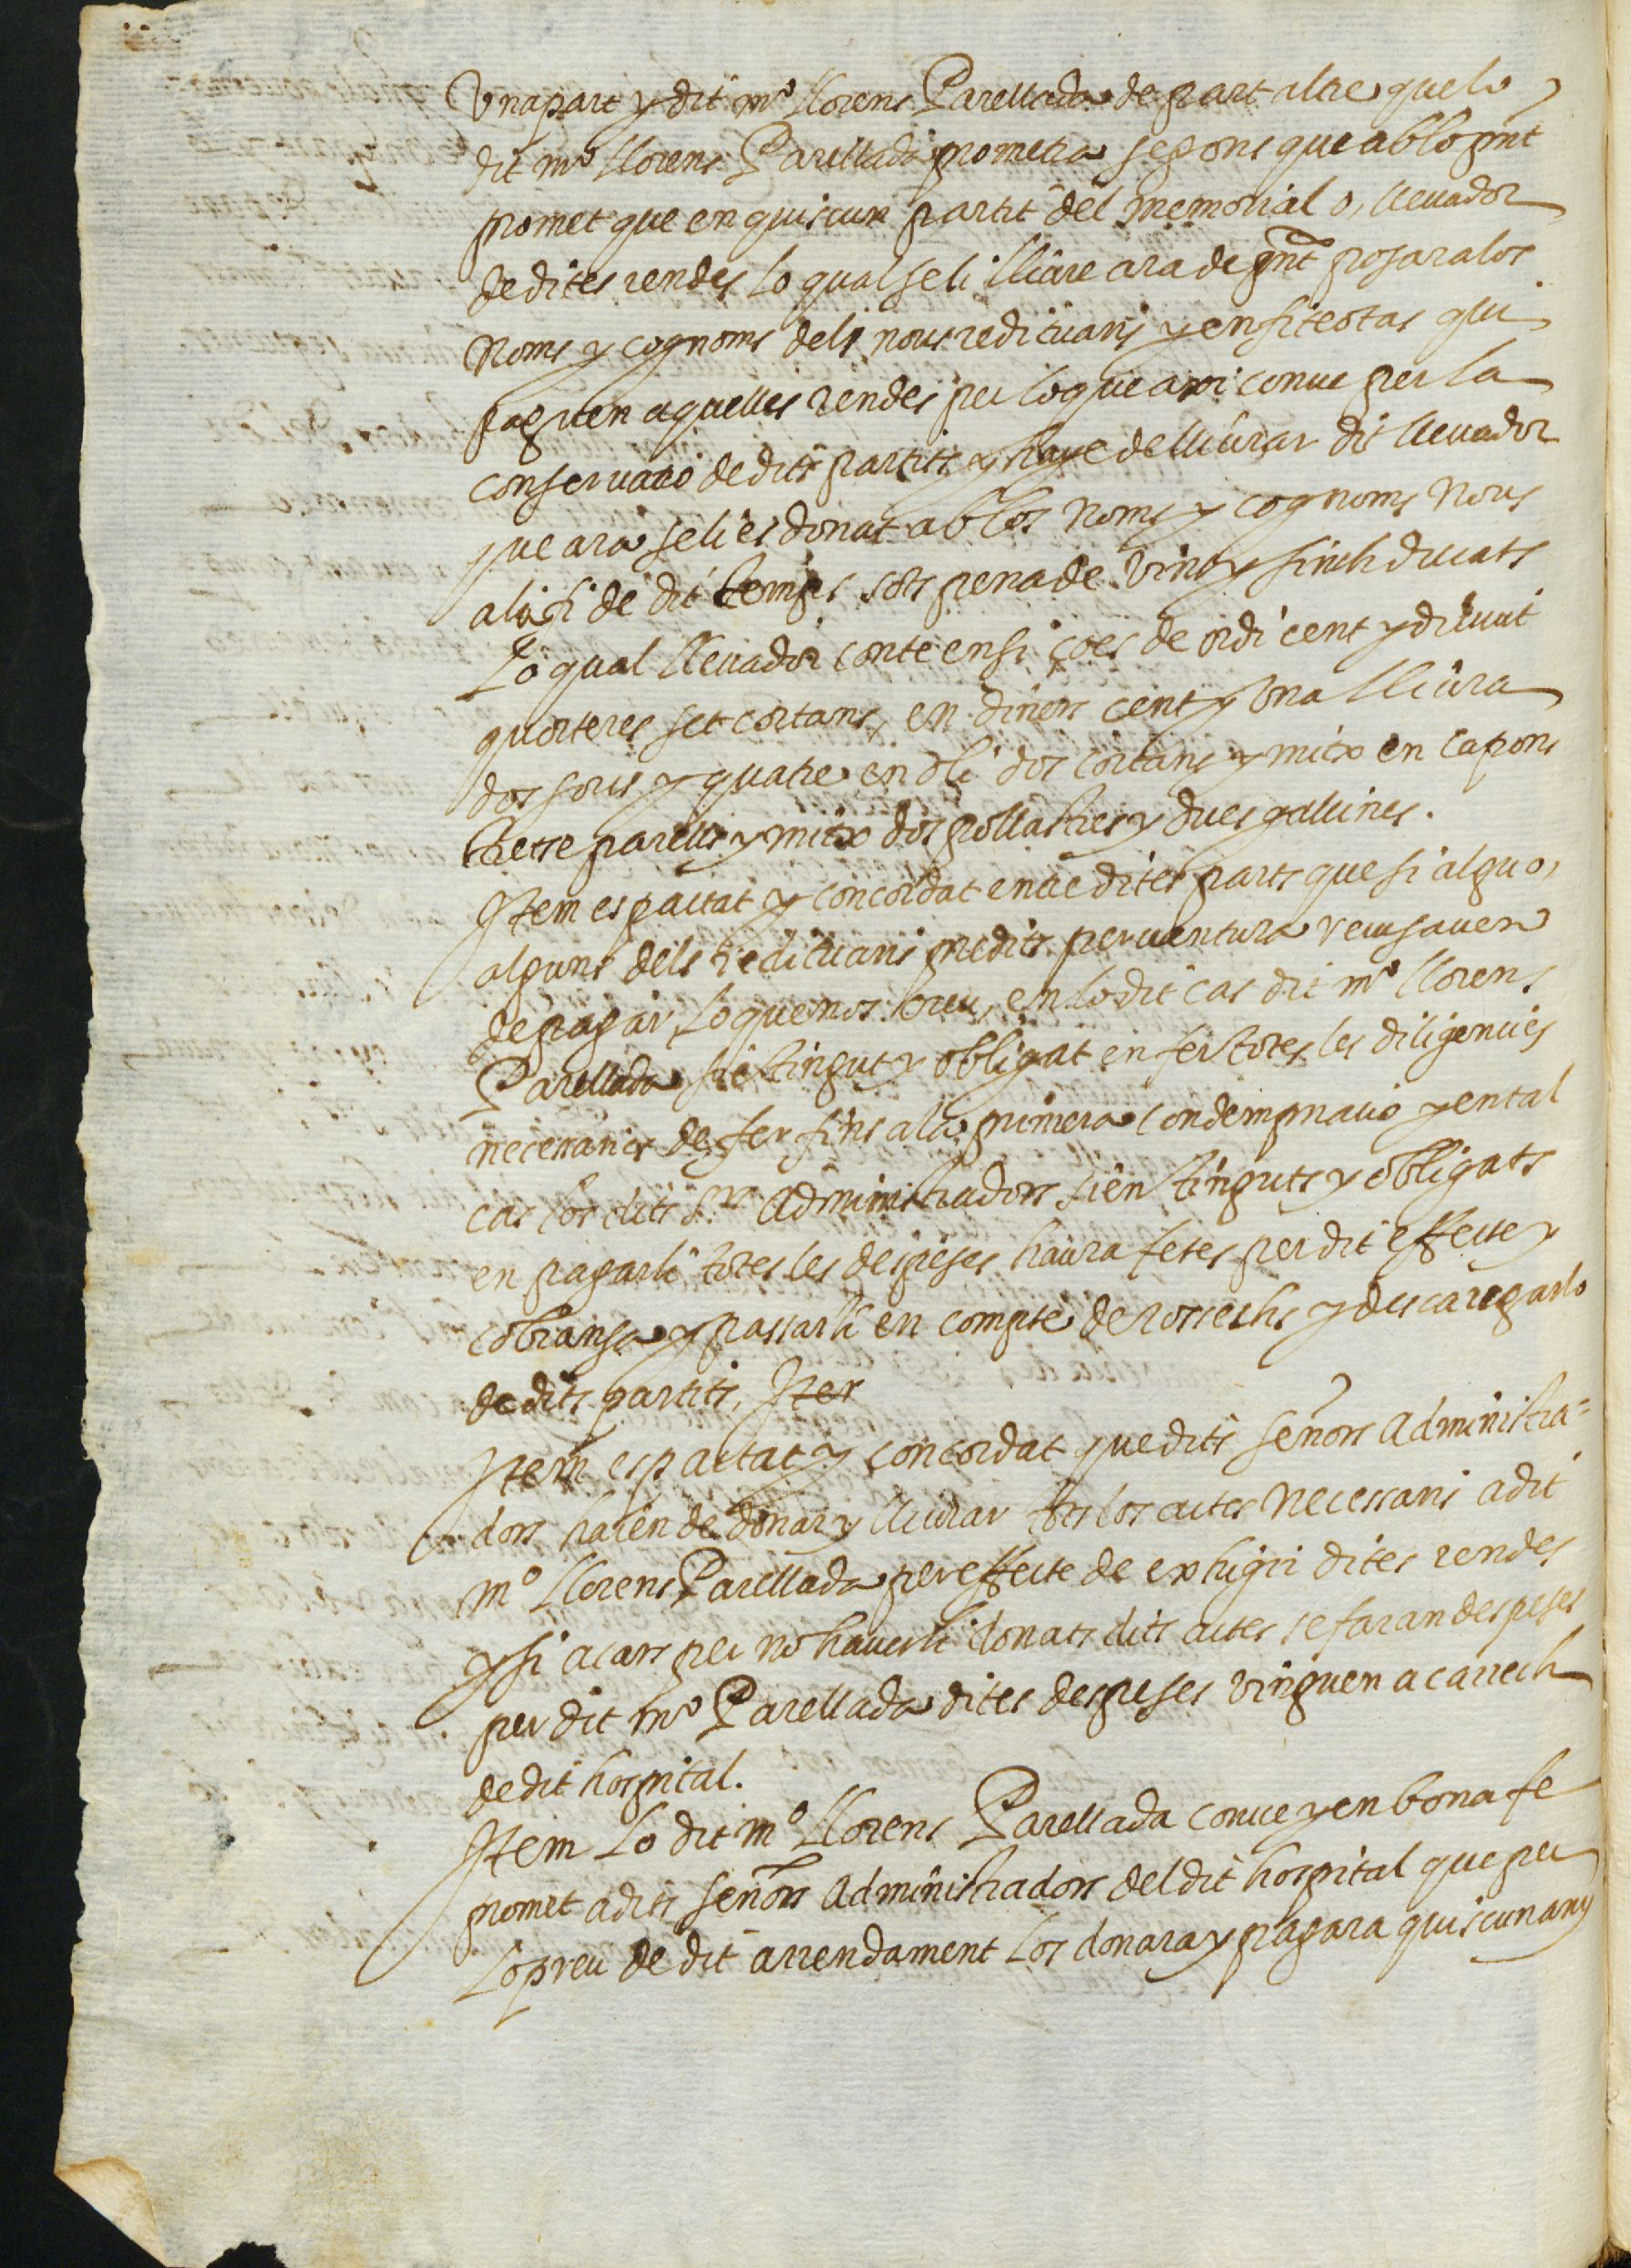 Una part y dit mº Llorens Parellada de part altre que lo
dit mº Llorens Parellada prometia segons que ab lo pnt
promet que en quiscun partit del memorial o, llevador
de dites rendes lo qual se li lliure ara de pnt posara los
noms y cognoms dels nous redituaris y enfiteotas qui
paguen aquelles rendes per lo que axi conve per la
conservatio de dits partits y haye de lliurar dit llevador
que ara se li es donat ab los noms y cognoms nous
a la fi de dit temps sots pena de vint y sinch ducats
Lo qual llevador conte en si ço es de ordi cent y divuit
quorteres set cortans, en diners cent y una lliura
dos sous y quatre en oli dos cortans y mitx en capons
tretse parells y mitx dos pollastres y dues gallines.
Item es pactat y concordat entre dites parts que si algu o,
alguns dels redituaris predits perventura recusaven
de pagar, lo que nos creu, en lo dit cas dit mº Llorens
Parellada sie tingut y obligat en fer totes les diligencies
necessaries de fer fins a la primera condempnatio y en tal
cas los dits Srs Administradors sien tinguts y obligats
en pagarli totes les despeses haura fetes per dit effecte y
cobransa y passarli en compte de rossechs y descaregarlo
de dits partits, Iter
Item es pactat y concordat que dits señors Administra=
dors haien de donar y lliurar tots los actes necessaris a dit
mº Llorens Parellada per effecte de exhigir dites rendes
y si a cars per no haverli donats dits actes se faran despeses
per dit mº Parellada dites despeses vinguen a carrech
de dit hospital.
Item Lo dit mº Llorens Parellada conve y en bona fe
promet a dits señors Administradors del dit hospital que per
Lo preu de dit arrendament los donara y pagara quiscun any